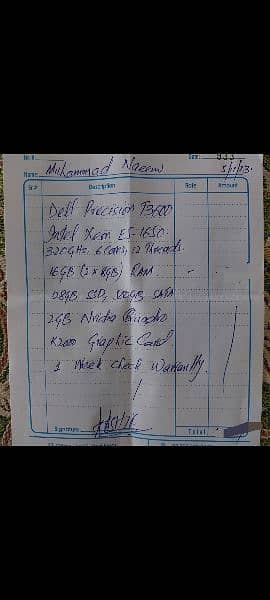 Name Muhammad Naeem
Sr.# Description Rate Amount
Dell Precision T3600
Intel Xeon E5-1650
3.20GHz, 6 Cores, 12 Threads.
16GB (2x8GB) RAM
128GB SSD, 500GB SATA
2GB Nvidia Quadro
K2000 Graphic Card
1 Week Check Warrantly
Signature Total